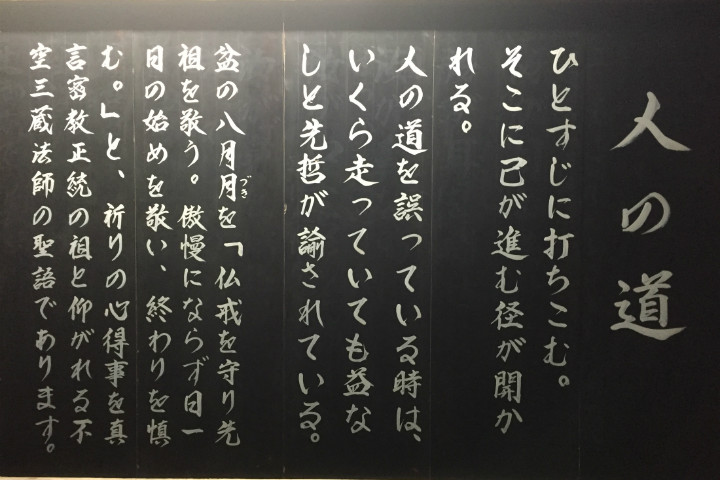 人の道
ひとすじに打ちこむ。
そこに己が進む径が開か
れる。
人の道を誤っている時は、
いくら走っていても益な
しと先哲が諭されている。
盆の八月月づきを「仏戒を守り先
祖を敬う。傲慢にならず日一
日の始めを敬い、終わりを慎
む。」と、祈りの心得事を真
言密教正統の祖と仰がれる不
空三蔵法師の聖語であります。